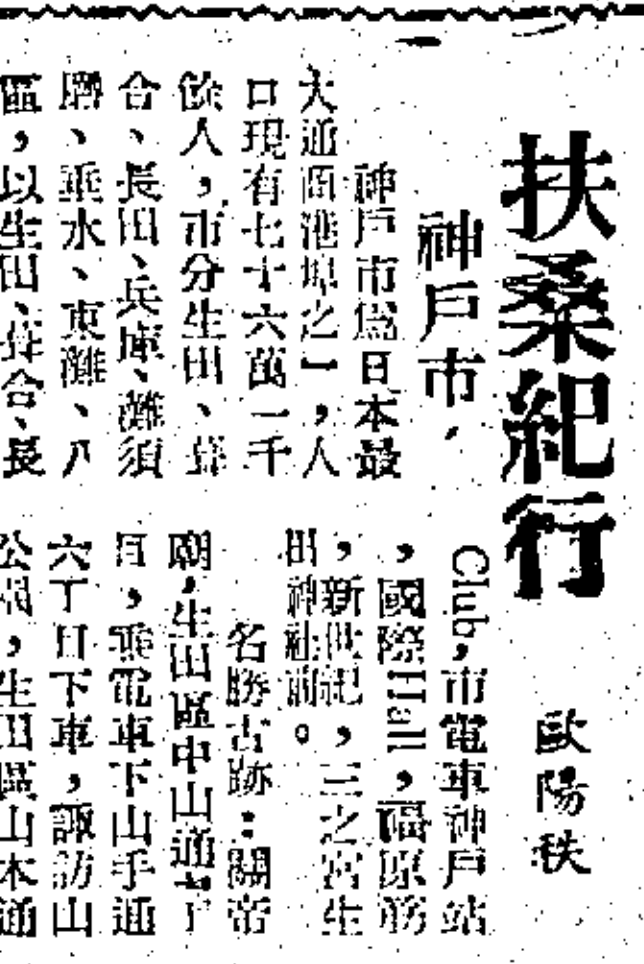 扶桑紀行
歐陽秩
神戶市
神戶市爲日本最
大通商港埠之一，人
口現有七十六萬一千
餘人，市分生田、葺
合、長田、兵庫、灘須
磨、垂水、東灘、八
區，以生田、葺合、長
Club，市電車神戶站
，國際Hall，福原
，新世紀，三之宮生
田神社前。
名勝古跡：關帝
廟，生田區中山通
目，乘電車下山手通
六丁目下車，諏訪山
公園，生田區山本通